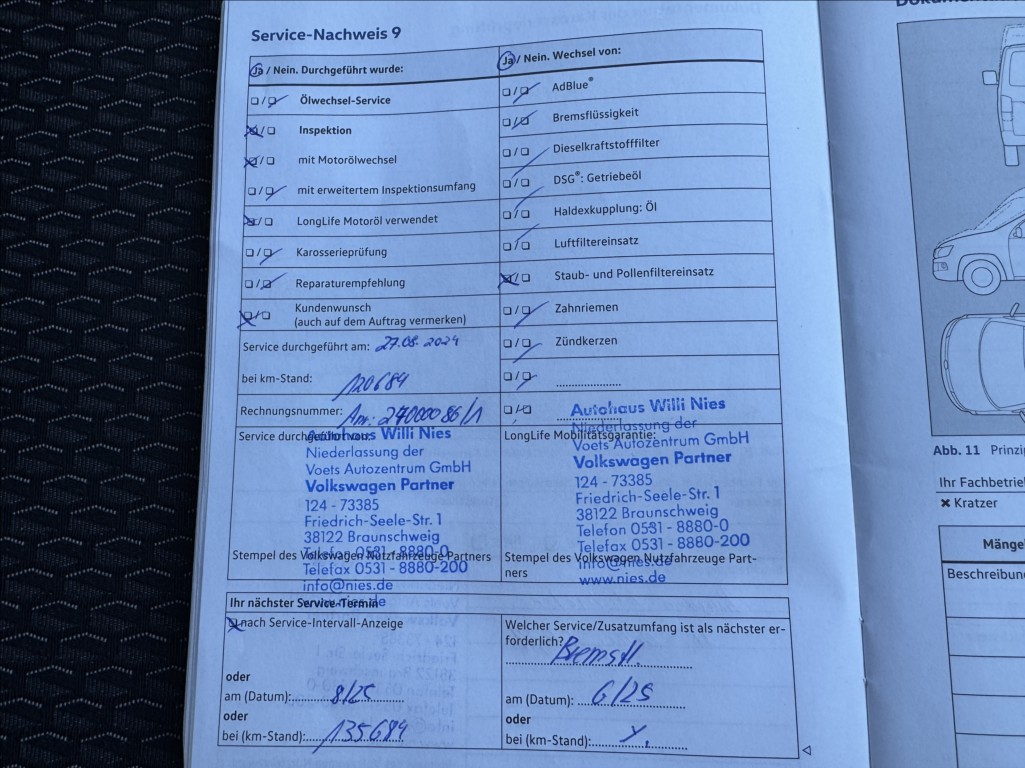 Service-Nachweis 9
Ja / Nein. Durchgeführt wurde:
Ölwechsel-Service
Inspektion
mit Motorölwechsel
mit erweitertem Inspektionsumfang
LongLife Motoröl verwendet
Karosserieprüfung
Reparaturempfehlung
Kundenwunsch
(auch auf dem Auftrag vermerken)
Service durchgeführt am: 27.08.2024
bei km-Stand: 120684
Rechnungsnummer:
Ja / Nein. Wechsel von:
AdBlue®
Bremsflüssigkeit
Dieselkraftstofffilter
DSG®: Getriebeöl
Haldexkupplung: Öl
Luftfiltereinsatz
Staub- und Pollenfiltereinsatz
Zahnriemen
Zündkerzen
Service durchgeführt von:
Autohaus Willi Nies
Niederlassung der
Voets Autozentrum GmbH
Volkswagen Partner
124 - 73385
Friedrich-Seele-Str. 1
38122 Braunschweig
Telefon 0531 - 8880-0
Telefax 0531 - 8880-200
info@nies.de
www.nies.de
Stempel des Volkswagen Nutzfahrzeuge Partners
LongLife Mobilitätsgarantie:
Autohaus Willi Nies
Niederlassung der
Voets Autozentrum GmbH
Volkswagen Partner
124 - 73385
Friedrich-Seele-Str. 1
38122 Braunschweig
Telefon 0531 - 8880-0
Telefax 0531 - 8880-200
info@nies.de
www.nies.de
Stempel des Volkswagen Nutzfahrzeuge Part-
ners
Ihr nächster Service-Termin
nach Service-Intervall-Anzeige
oder
am (Datum): 8/25
oder
bei (km-Stand): 135684
Welcher Service/Zusatzumfang ist als nächster er-
forderlich?
Bremsfl.
am (Datum): 6/25
oder
bei (km-Stand):
Abb. 11 Prinzi
Ihr Fachbetrie
✖ Kratzer
Mänge
Beschreibun